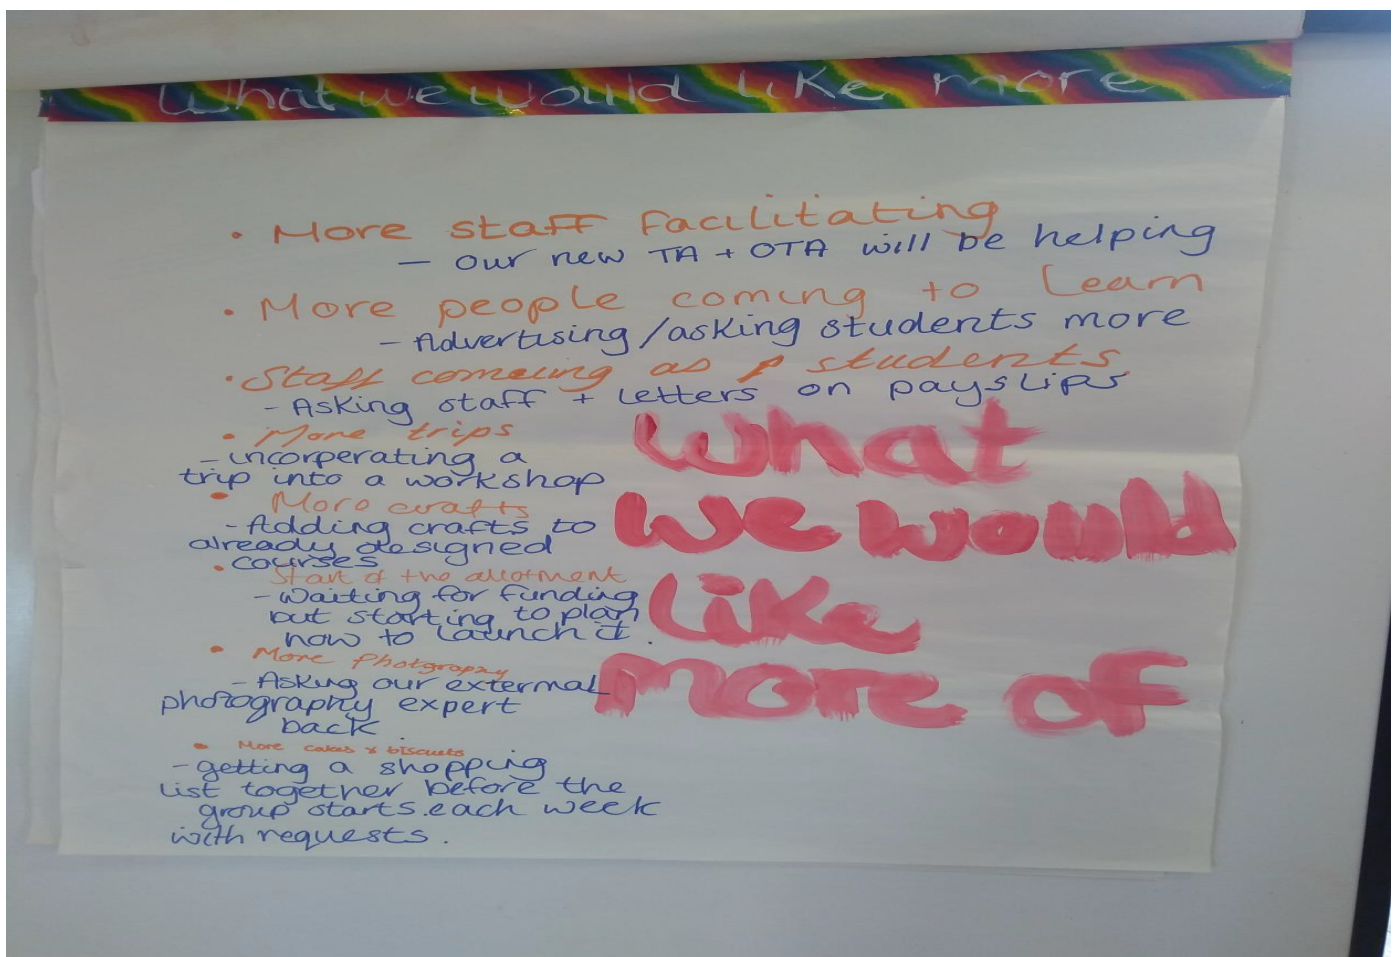 What we would like more
• More staff facilitating
– our new TA + OTA will be helping
• More people coming to learn
– Advertising/asking students more
• Staff comeing as students
– Asking staff + letters on payslips
• More trips
– incorperating a
trip into a workshop
• More crafts
– Adding crafts to
already designed
courses
• Start of the allotment
– Waiting for funding
but starting to plan
how to launch it.
• More Photgraphy
– Asking our external
photography expert
back
• More cakes & biscuits
– getting a shopping
list together before the
group starts each week
with requests.
What
we would
like
more of